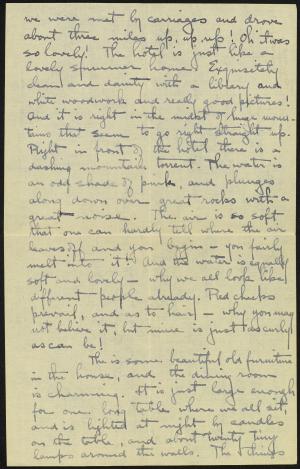 we were met by carriages and drove
about three miles up, up, up! Oh it was
so lovely! The hotel is just like a
lovely summer home. Exquisitely
clean and dainty with a library and
white woodwork and really good pictures!
And it is right in the midst of huge moun-
tains that seem to go right straight up.
Right in front of the hotel there is a
dashing mountain torrent. The water is
an odd shade of pink, and plunges
along down over great rocks with a
great noise. The air is so soft
that one can hardly tell where the air
leaves off and you begin - you fairly
melt into it! And the water is equally
soft and lovely - why we all look like
different people already. Red cheeks
prevail, and as to hair - why you may
not believe it, but mine is just as curly
as can be!
There is some beautiful old furniture
in the house, and the dining room
is charming. It is just large enough
for one long table where we all sit,
and is lighted at night by candles
on the table, and about twenty tiny
lamps around the walls. The things